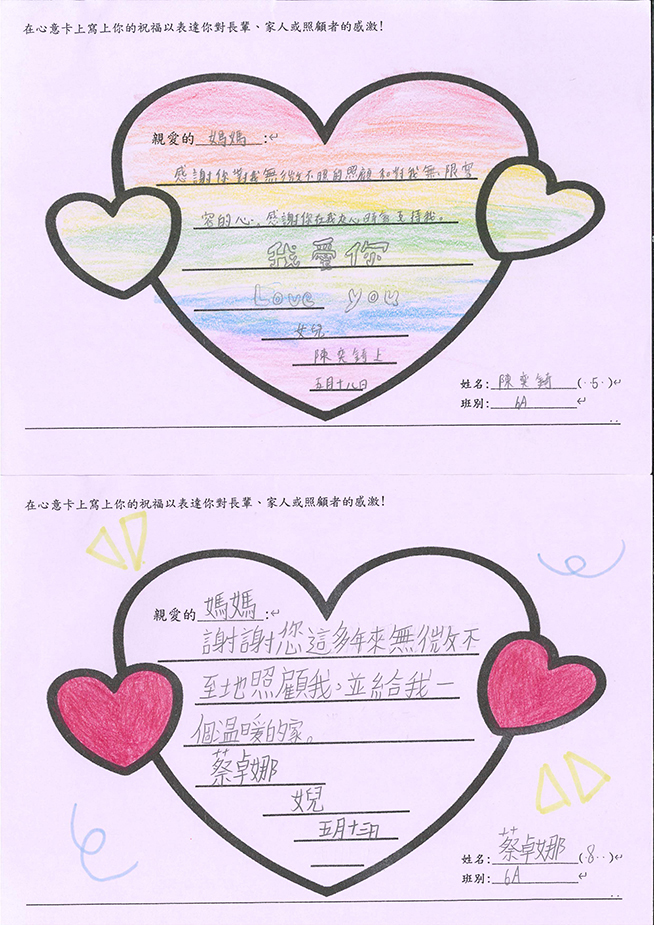 在心意卡上寫上你的祝福以表達你對長輩、家人或照顧者的感激!
親愛的 媽媽 :↵
感謝你對我無微不眼的照顧和對我無限寬
容的心。感謝你在我灰心時常支持我。
我愛你
Love you
女兒
陳奕錡上
五月十八日
姓名: 陳奕錡 (·5·)↵
班別: 6A ↵
在心意卡上寫上你的祝福以表達你對長輩、家人或照顧者的感激!
親愛的 媽媽 :↵
謝謝您這多年來無微不
至地照顧我,並給我一
個溫暖的家。
蔡卓娜
女兒
五月十三日
姓名: 蔡卓娜 (·8··)↵
班別: 6A ↵